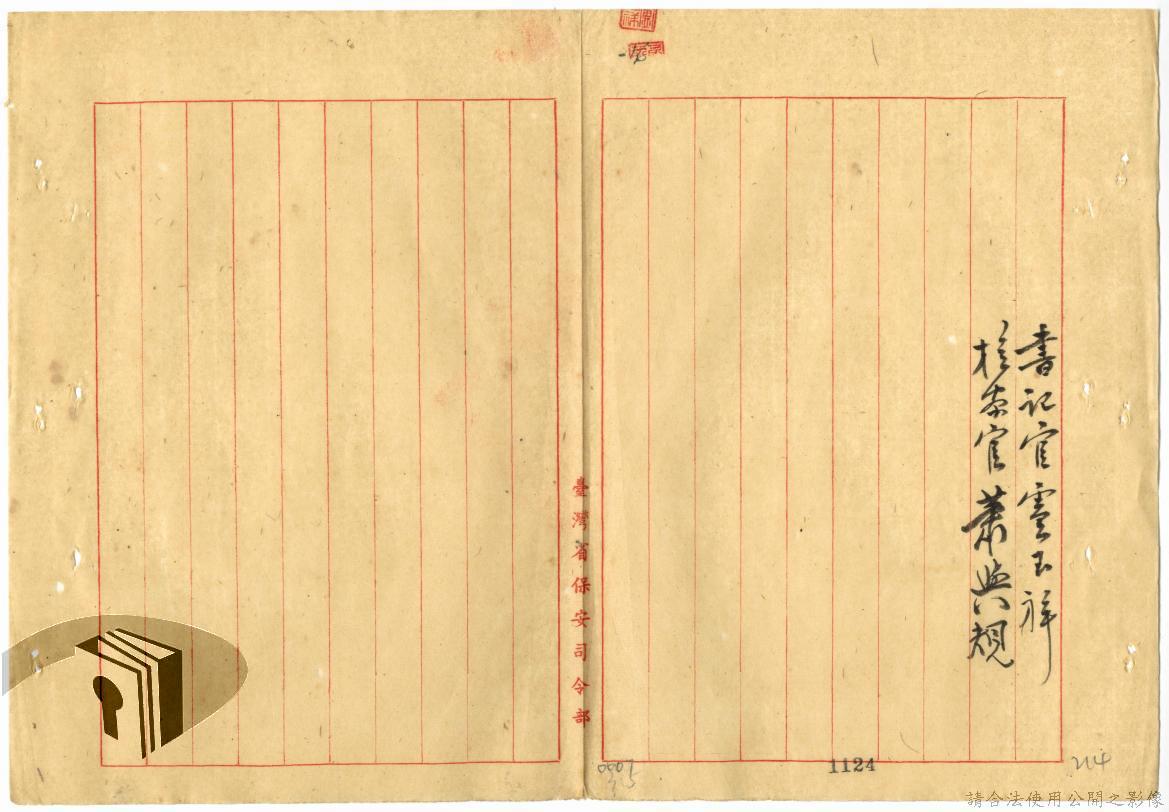 書記官雲玉祥
檢察官蕭與規
臺灣省保安司令部
1124
214
請合法使用公開之影像